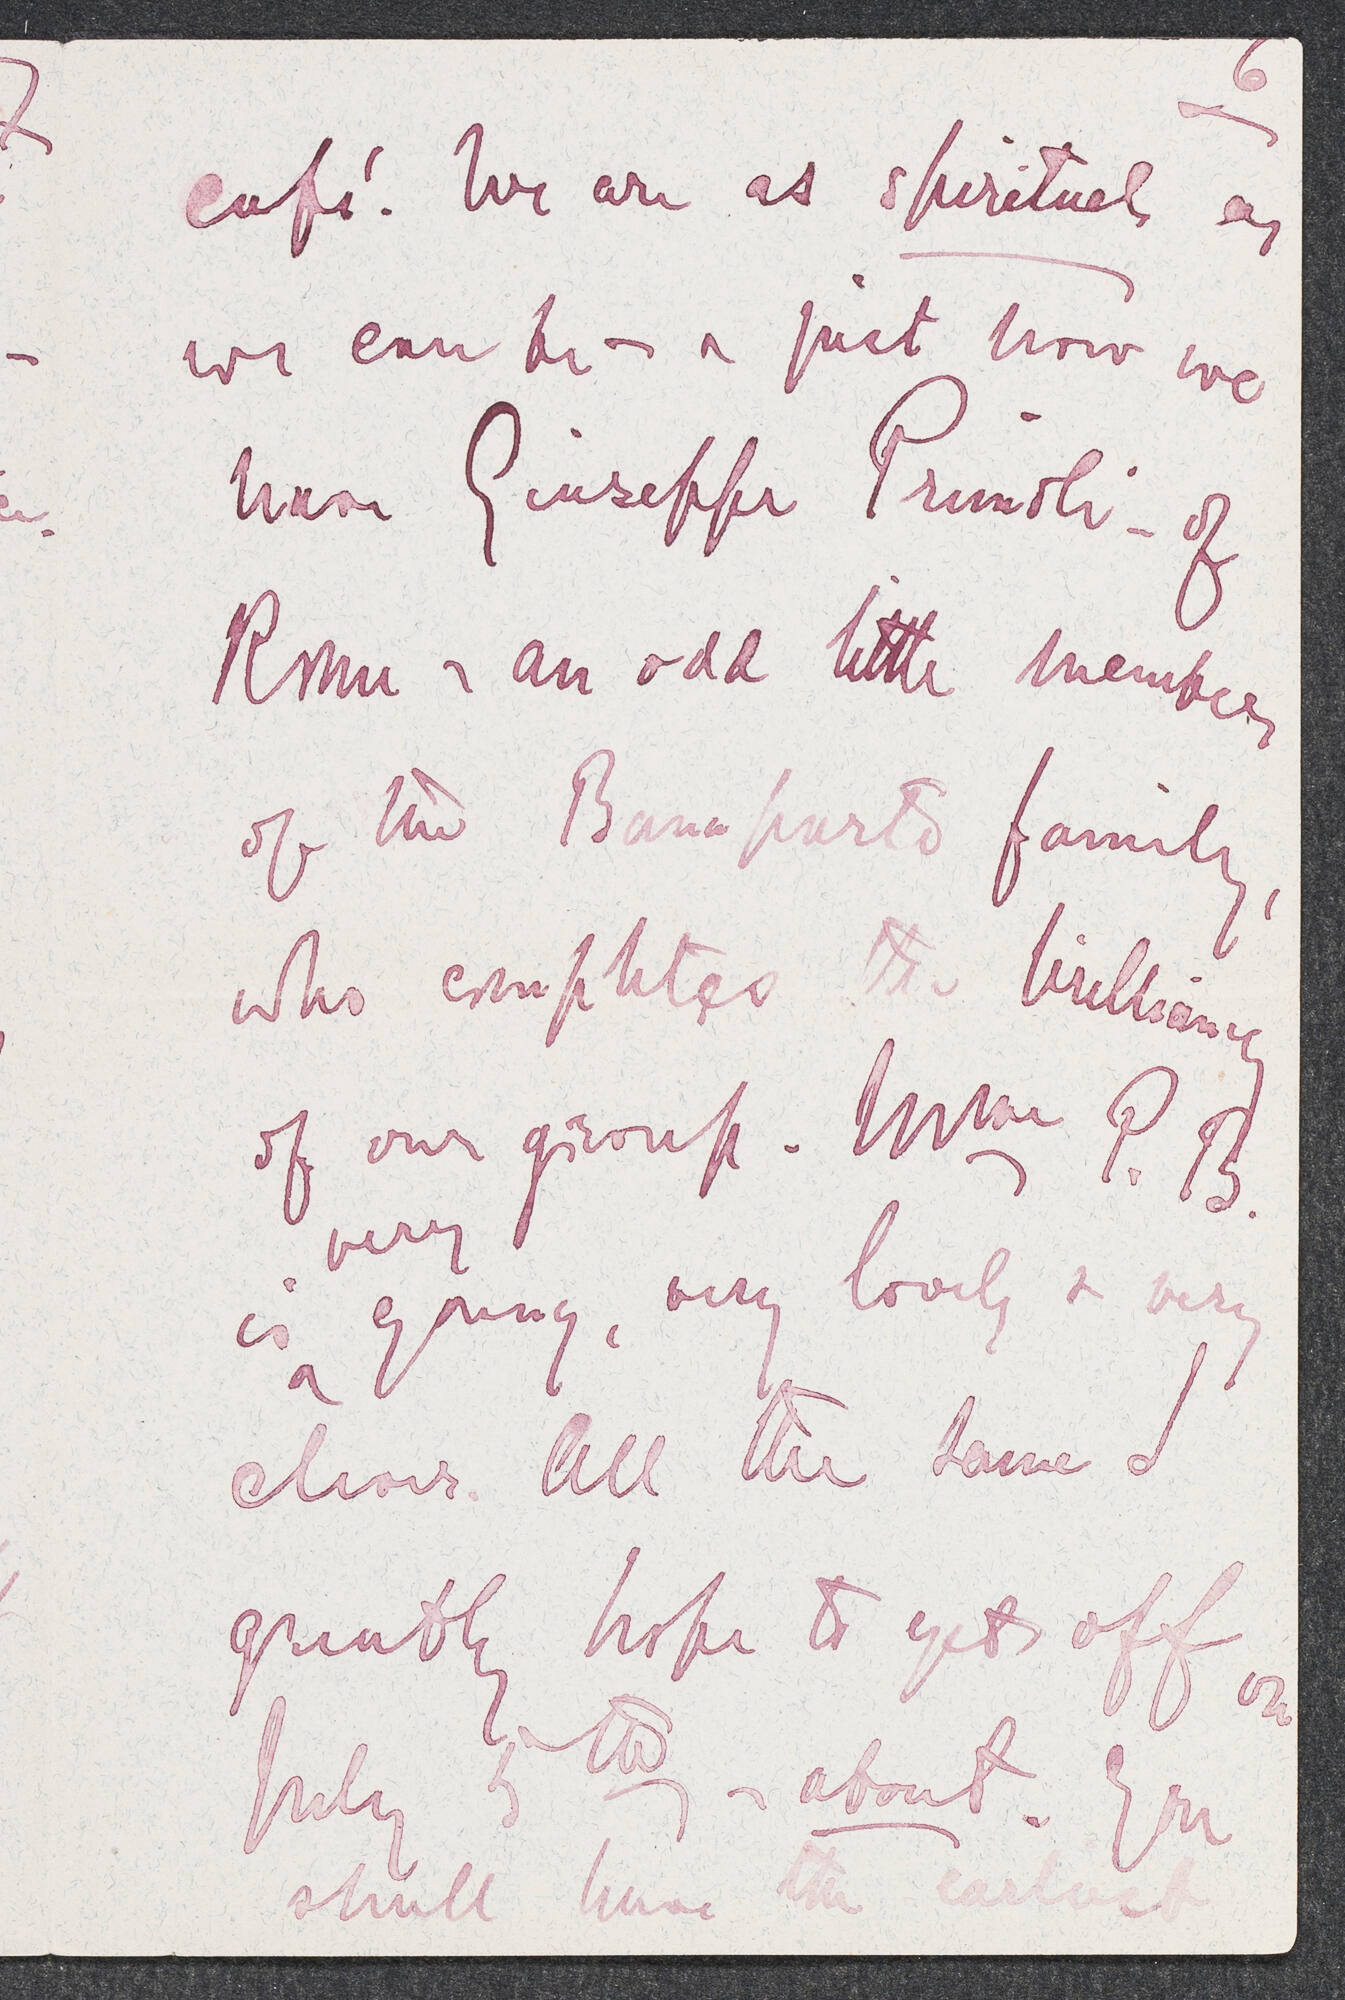 6
café. We are as spirituels as
we can be — & just now we
have Giuseppe Primoli — of
Rome — an odd little member
of the Bonaparte family,
who completes the brilliancy
of our group. Mme P. B.
is very young, very lovely & very
clever. All the same I
greatly hope to get off on
July 5th — about. You
shall have the earliest